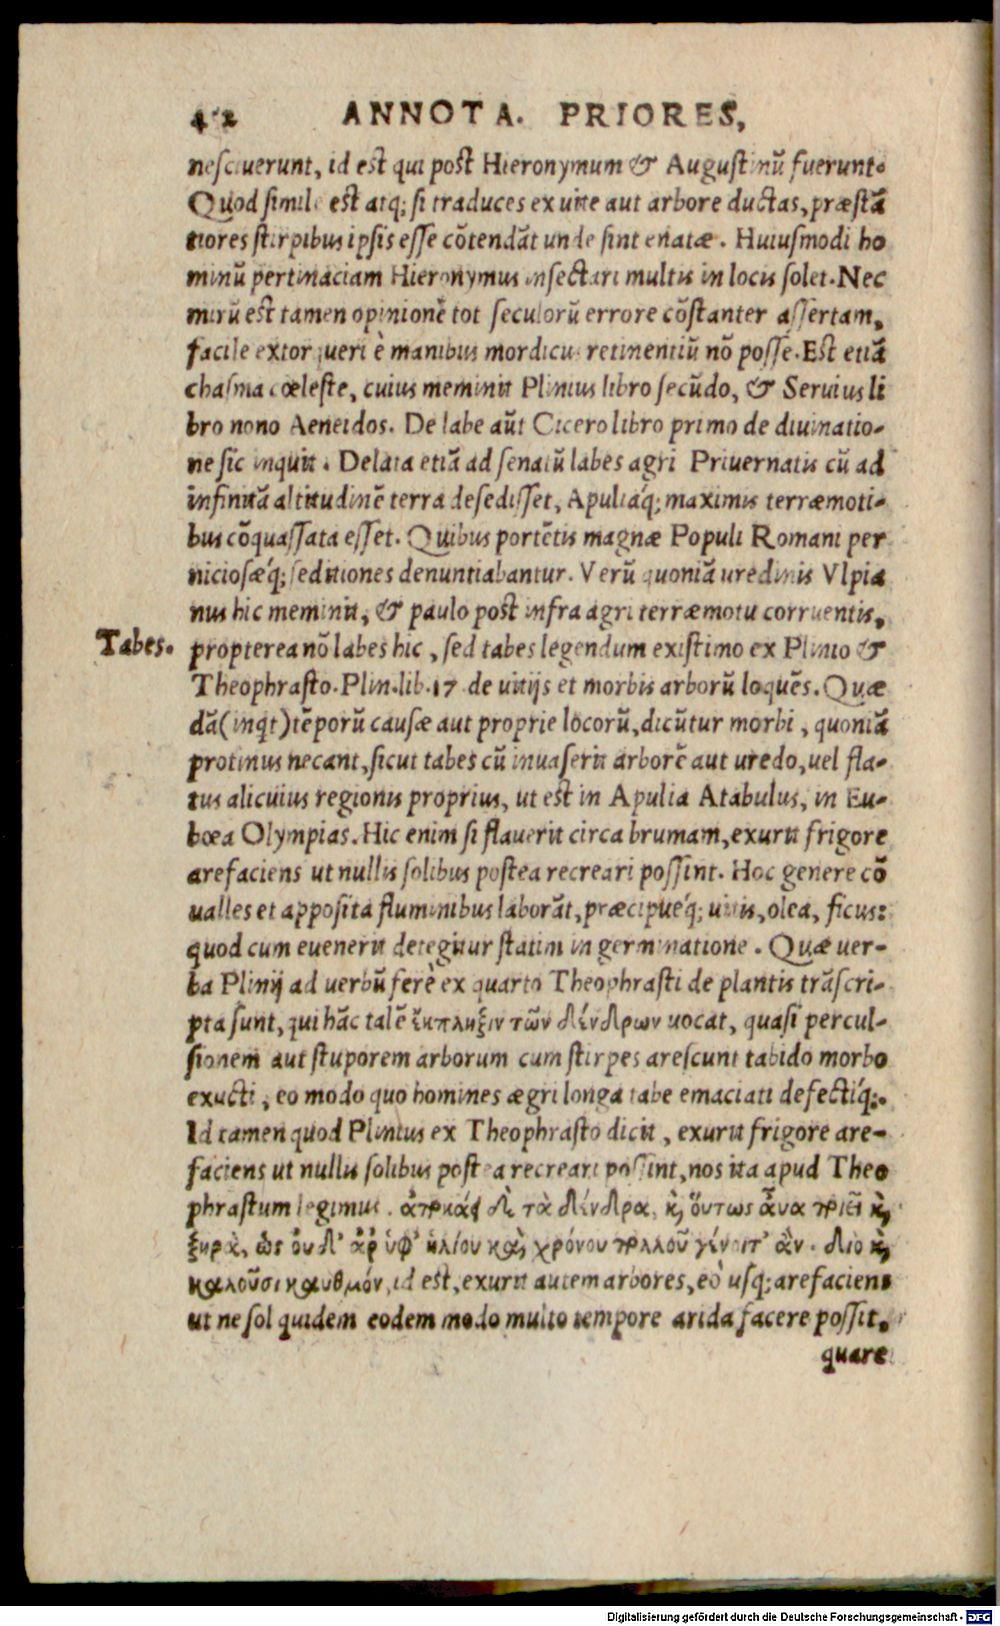 42 ANNOTA. PRIORES,
nesciuerunt, id est qui post Hieronymum & Augustinū fuerunt.
Quod simile est atq; si traduces ex uite aut arbore ductas, præstā
tiores stirpibus ipsis esse cōtendāt unde sint enatæ. Huiusmodi ho
minū pertinaciam Hieronymus insectari multis in locis solet. Nec
mirū est tamen opinionē tot seculorū errore cōstanter assertam,
facile extorqueri è manibus mordicus retinentiū nō posse. Est etiā
chasma cœleste, cuius meminit Plinius libro secūdo, & Seruius li
bro nono Aeneidos. De labe aūt Cicero libro primo de diuinatio-
ne sic inquit. Delata etiā ad senatū labes agri Priuernatis cū ad
infinitā altitudinē terra desedisset, Apuliaq́; maximis terræmoti-
bus cōquassata esset. Quibus portētis magnæ Populi Romani per
niciosæq́; seditiones denuntiabantur. Verū quoniā uredinis Vlpia
nus hic meminit, & paulo post infra agri terræmotu corruentis,
Tabes. propterea nō labes hic, sed tabes legendum existimo ex Plinio &
Theophrasto. Plin. lib. 17 de uitijs et morbis arborū loquēs. Quæ
dā (inqt) tēporū causæ aut proprie locorū, dicūtur morbi, quoniā
protinus necant, sicut tabes cū inuaserit arborē aut uredo, uel fla-
tus alicuius regionis proprius, ut est in Apulia Atabulus, in Eu-
bœa Olympias. Hic enim si flauerit circa brumam, exurit frigore
arefaciens ut nullis solibus postea recreari possint. Hoc genere cō
ualles et apposita fluminibus laborāt, præcipueq́; uitis, olea, ficus:
quod cum euenerit detegitur statim in germinatione. Quæ uer-
ba Plinij ad uerbū ferè ex quarto Theophrasti de plantis trāscri-
pta sunt, qui hāc talē ἔκπληξιν τῶν δένδρων uocat, quasi percul-
sionem aut stuporem arborum cum stirpes arescunt tabido morbo
exucti, eo modo quo homines ægri longa tabe emaciati defectiq́;.
Id tamen quod Plinius ex Theophrasto dicit, exurit frigore are-
faciens ut nullis solibus postea recreari possint, nos ita apud Theo
phrastum legimus. δὲ τὰ δένδρα, κ̀ ὅυτως κ̀
ξηρὰ, ὡς ὀυδ' ἂρ ὑφ' ἡλίου καὶ χρόνου πολλοῦ γένοιτ' ἂν. διο κ̀
καλοῦσι καυθμόν, id est, exurit autem arbores, eò usq; arefaciens
ut ne sol quidem eodem modo multo tempore arida facere possit,
quare
Digitalisierung gefördert durch die Deutsche Forschungsgemeinschaft - DFG